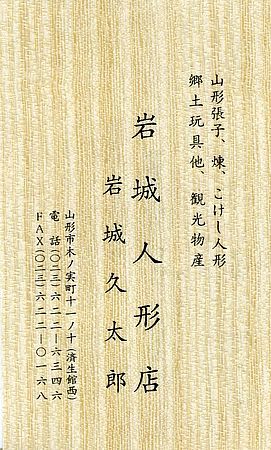 山形張子、煉、こけし人形
郷土玩具他、観光物産
岩城人形店
岩城久太郎
山形市木ノ実町十一ノ十(済生館西)
電話〇二三)六二二―六三四六
FAX〇二三)六二二―〇一六八